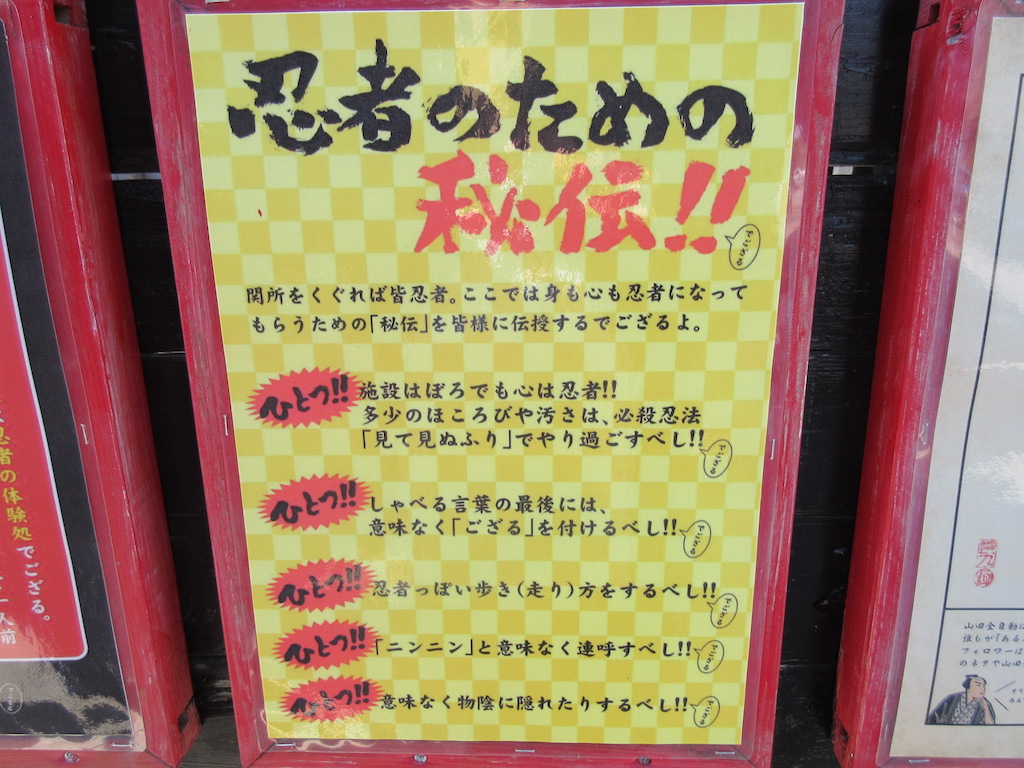 忍者のための
秘伝!!
でござる
関所をくぐれば皆忍者。ここでは身も心も忍者になって
もらうための「秘伝」を皆様に伝授するでござるよ。
ひとつ!!
施設はぼろでも心は忍者!!
多少のほころびや汚さは、必殺忍法
「見て見ぬふり」でやり過ごすべし!!
でござる
ひとつ!!
しゃべる言葉の最後には、
意味なく「ござる」を付けるべし!!
でござる
ひとつ!!
忍者っぽい歩き(走り)方をするべし!!
でござる
ひとつ!!
「ニンニン」と意味なく連呼すべし!!
でござる
ひとつ!!
意味なく物陰に隠れたりするべし!!
でござる
忍者の体験処でござる。
人前
山田全自動に
誰もが「ある
フォロワーは
のネタや山田